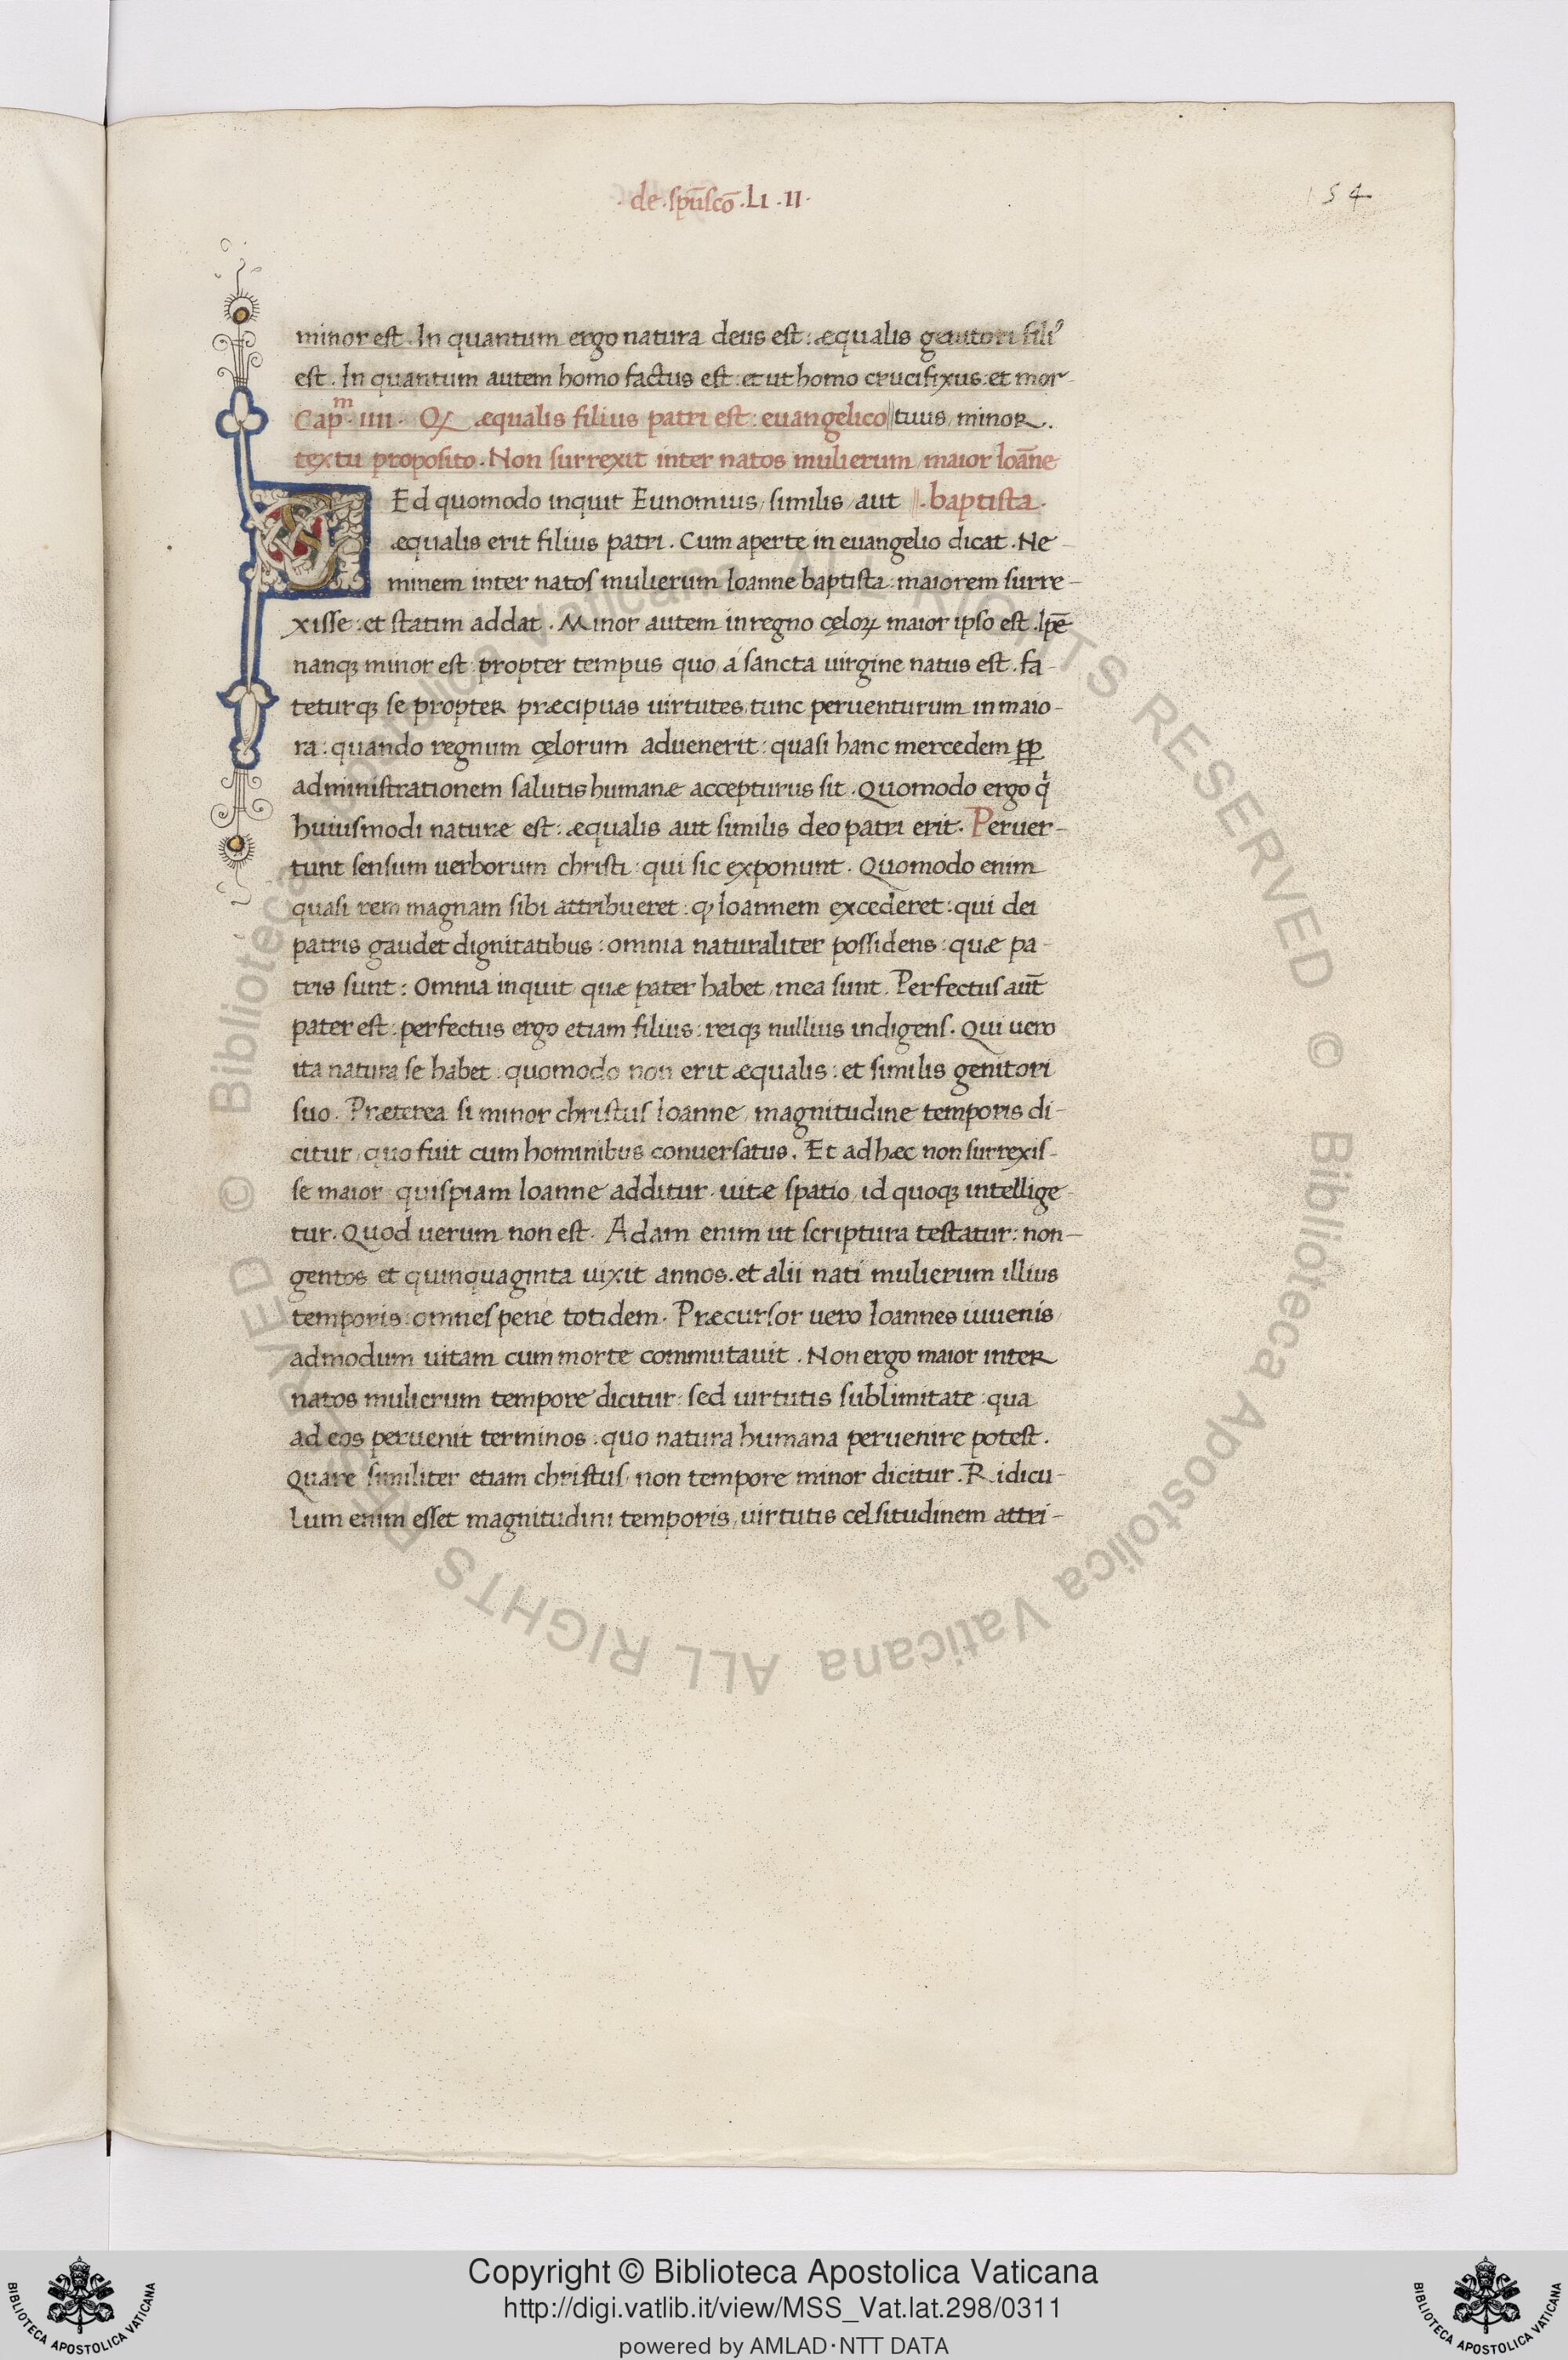 · de · sp̄uscō · LI · II ·
154
minor est. In quantum ergo natura deus est: æqualis genitori filiꝰ
est. In quantum autem homo factus est: et ut homo crucifixus: et mor-
Capᵐ. IIII. Qꝫ æqualis filius patri est: euangelico ‖ tuus, minor.
textu proposito. Non surrexit inter natos mulierum, maior Ioāne
SEd quomodo inquit Eunomius, similis, aut ‖ · baptista ·
æqualis erit filius patri. Cum aperte in euangelio dicat. Ne-
minem inter natos mulierum Ioanne baptista: maiorem surre-
xisse: et statim addat. Minor autem in regno cęloꝝ maior ipso est. Ipē
nanqꝫ minor est propter tempus quo, á sancta uirgine natus est. fa-
teturqꝫ se propter præcipuas uirtutes, tunc peruenturum in maio-
ra: quando regnum cęlorum aduenerit: quasi hanc mercedem ꝓꝑ
administrationem salutis humanæ accepturus sit. Quomodo ergo qͥ
huiusmodi naturæ est: æqualis aut similis deo patri erit. Peruer-
tunt sensum uerborum christi: qui sic exponunt. Quomodo enim
quasi rem magnam sibi attribueret: ꝙ Ioannem excederet: qui dei
patris gaudet dignitatibus: omnia naturaliter possidens: quæ pa-
tris sunt: Omnia inquit, quæ pater habet, mea sunt. Perfectus aut̄
pater est: perfectus ergo etiam filius: reiqꝫ nullius indigens. Qui uero
ita natura se habet: quomodo non erit æqualis: et similis genitori
suo. Præterea si minor christus Ioanne, magnitudine temporis di-
citur, quo fuit cum hominibus conuersatus. Et ad hæc non surrexis-
se maior quispiam Ioanne additur, uitæ spatio, id quoqꝫ intellige-
tur. Quod uerum non est. Adam enim ut scriptura testatur: non-
gentos et quinquaginta uixit annos. et alii nati mulierum illius
temporis: omnes pené totidem. Præcursor uero Ioannes iuuenis
admodum uitam cum morte commutauit. Non ergo maior inter
natos mulierum tempore dicitur: sed uirtutis sublimitate: qua
ad eos peruenit terminos: quo natura humana peruenire potest.
Quare similiter etiam christus, non tempore minor dicitur. Ridicu-
lum enim esset magnitudini temporis, uirtutis celsitudinem attri-
© Biblioteca Apostolica Vaticana ALL RIGHTS RESERVED © Biblioteca Apostolica Vaticana ALL RIGHTS RESERVED
Copyright © Biblioteca Apostolica Vaticana
http://digi.vatlib.it/view/MSS_Vat.lat.298/0311
powered by AMLAD·NTT DATA
BIBLIOTECA APOSTOLICA VATICANA
BIBLIOTECA APOSTOLICA VATICANA